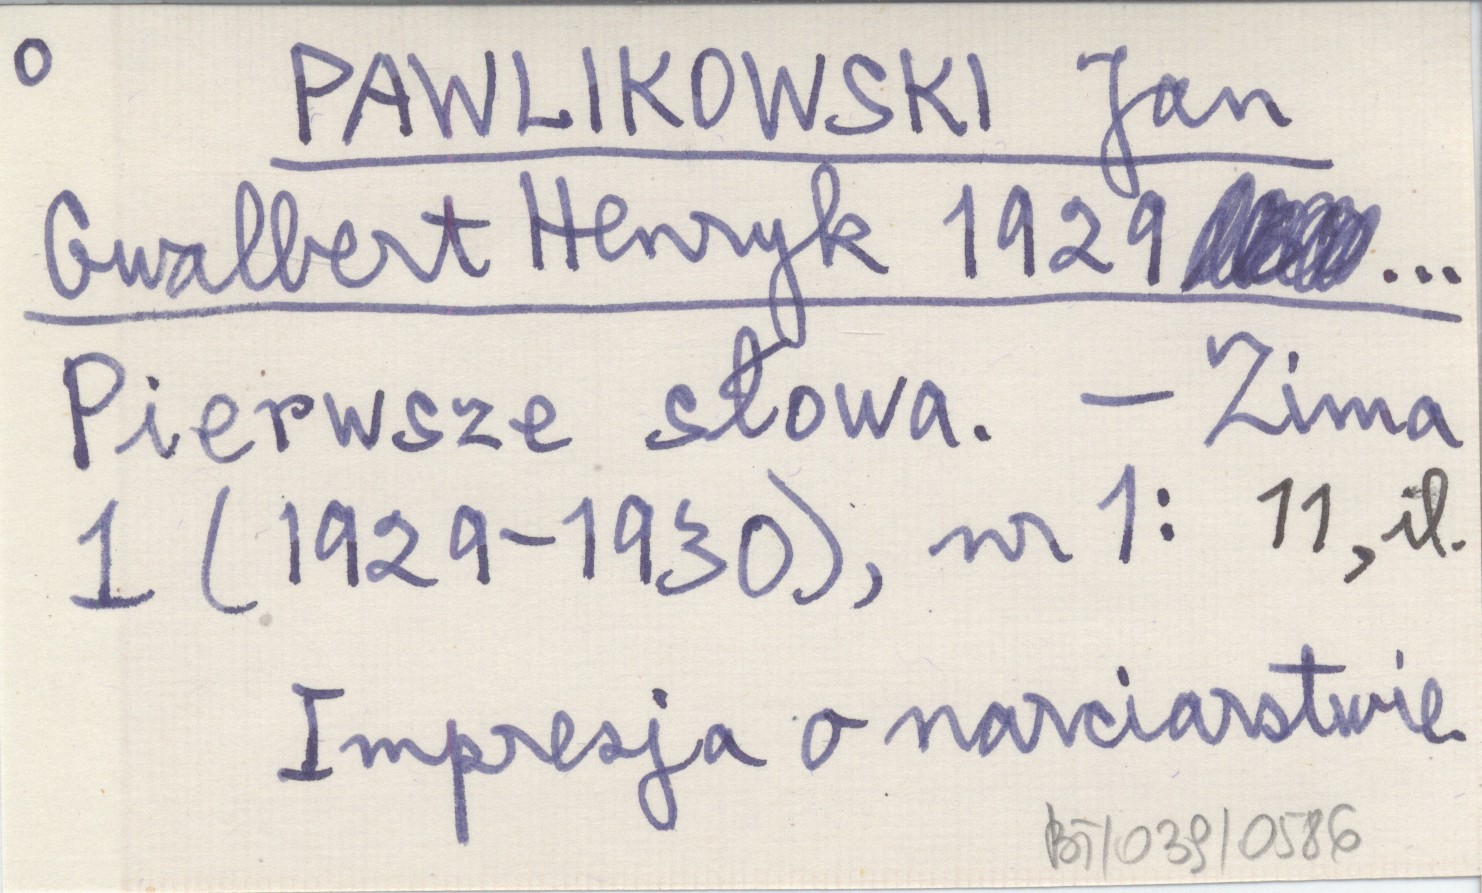 o PAWLIKOWSKI Jan
Gwalbert Henryk 1929 ...
Pierwsze słowa. – Zima
1 (1929-1930), nr 1: 11, il.
Impresja o narciarstwie.
BT/039/0586